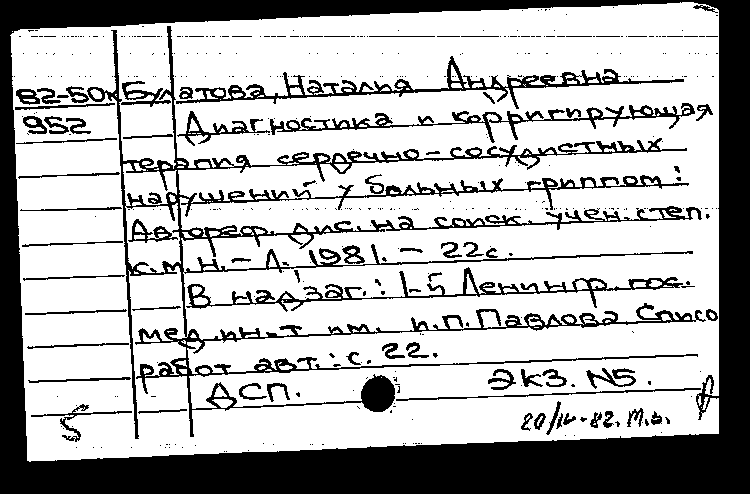 82-50к Булатова, Наталия Андреевна.
952 Диагностика и корригирующая
терапия сердечно-сосудистных
нарушений у больных гриппом:
Автореф. дис. на соиск. учен. степ.
к.м.н. - Л., 1981. - 22с.
В надзаг.: 1-й Ленингр. гос.
мед. ин-т им. И.П. Павлова Списо
работ авт.: с. 22.
ДСП. Экз. N5.
5 20/IV-82. М.в.